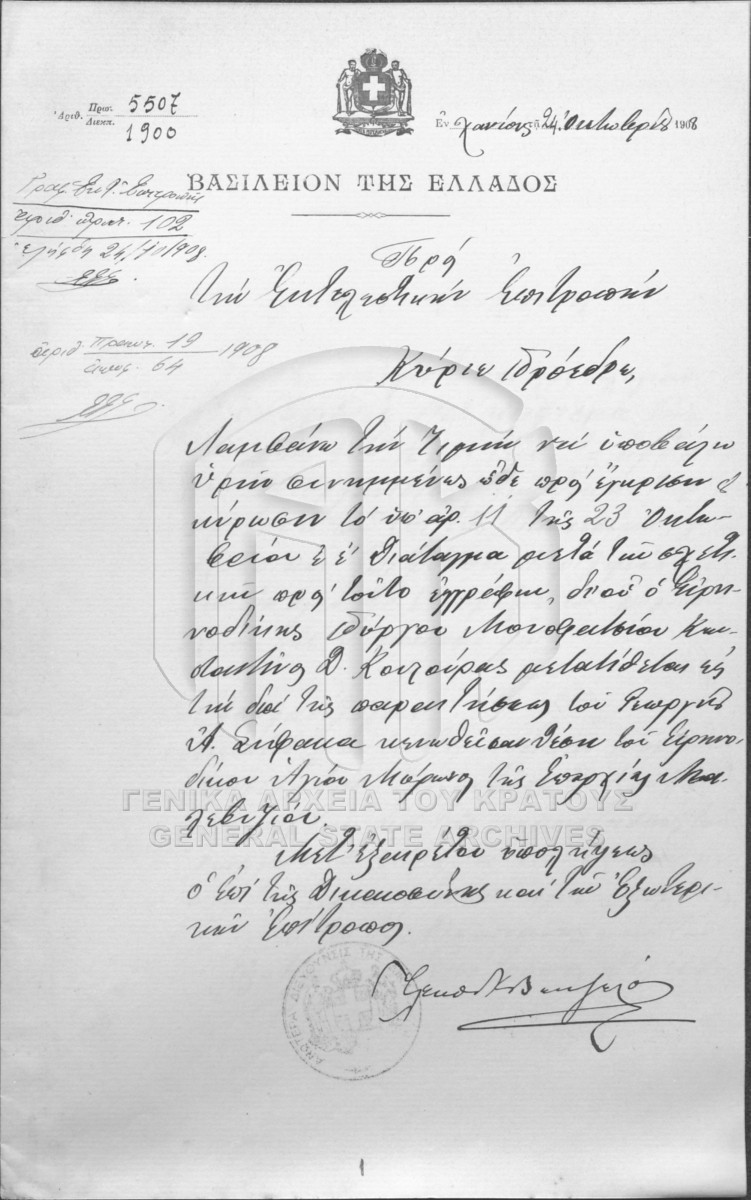 Ἀριθ. Πρωτ. 5507
Διεκπ. 1900
Ἐν Χανίοις τῇ 24 Ὀκτωβρίου 1908
ΒΑΣΙΛΕΙΟΝ ΤΗΣ ΕΛΛΑΔΟΣ
Γραφ. Ἐκτ. Ἐπιτροπῆς
Ἀριθ. πρωτ. 102
Ἐλήφθη 24/10/1908
Ἀριθ. Πρακτ. 19 1908
64
Πρὸς
Τὴν Ἐκτελεστικὴν Ἐπιτροπήν
Κύριε Πρόεδρε,
Λαμβάνω τὴν τιμὴν νὰ ὑποβάλω
ὑμῖν συνημμένως ὧδε πρὸς ἔγκρισιν &
κύρωσιν τὸ ὑπ' ἀρ. 11 τῆς 23 Ὀκτω-
βρίου ἐ. ἔ. Διάταγμα μετὰ τῶν σχετι-
κῶν πρὸς τοῦτο ἐγγράφων, δι' οὗ ὁ Εἰρη-
νοδίκης Πύργου Μονοφατσίου Κων-
σταντῖνος Δ. Κοτζούρας μετατίθεται εἰς
τὴν διὰ τῆς παραιτήσεως τοῦ Γεωργίου
Ἀ. Σηφάκα κενωθεῖσαν θέσιν τοῦ Εἰρηνο-
δίκου Ἁγίου Μύρωνος τῆς Ἐπαρχίας Μα-
λεβυζίου.
Μετ' ἐξαιρέτου ὑπολήψεως
ὁ ἐπὶ τῆς Δικαιοσύνης καὶ τῶν Ἐξωτερι-
κῶν Ἐπίτροπος
ΑΝΩΤΕΡΑ ΔΙΕΥΘΥΝΣΙΣ ΤΗΣ
ΓΕΝΙΚΑ ΑΡΧΕΙΑ ΤΟΥ ΚΡΑΤΟΥΣ
GENERAL STATE ARCHIVES
1